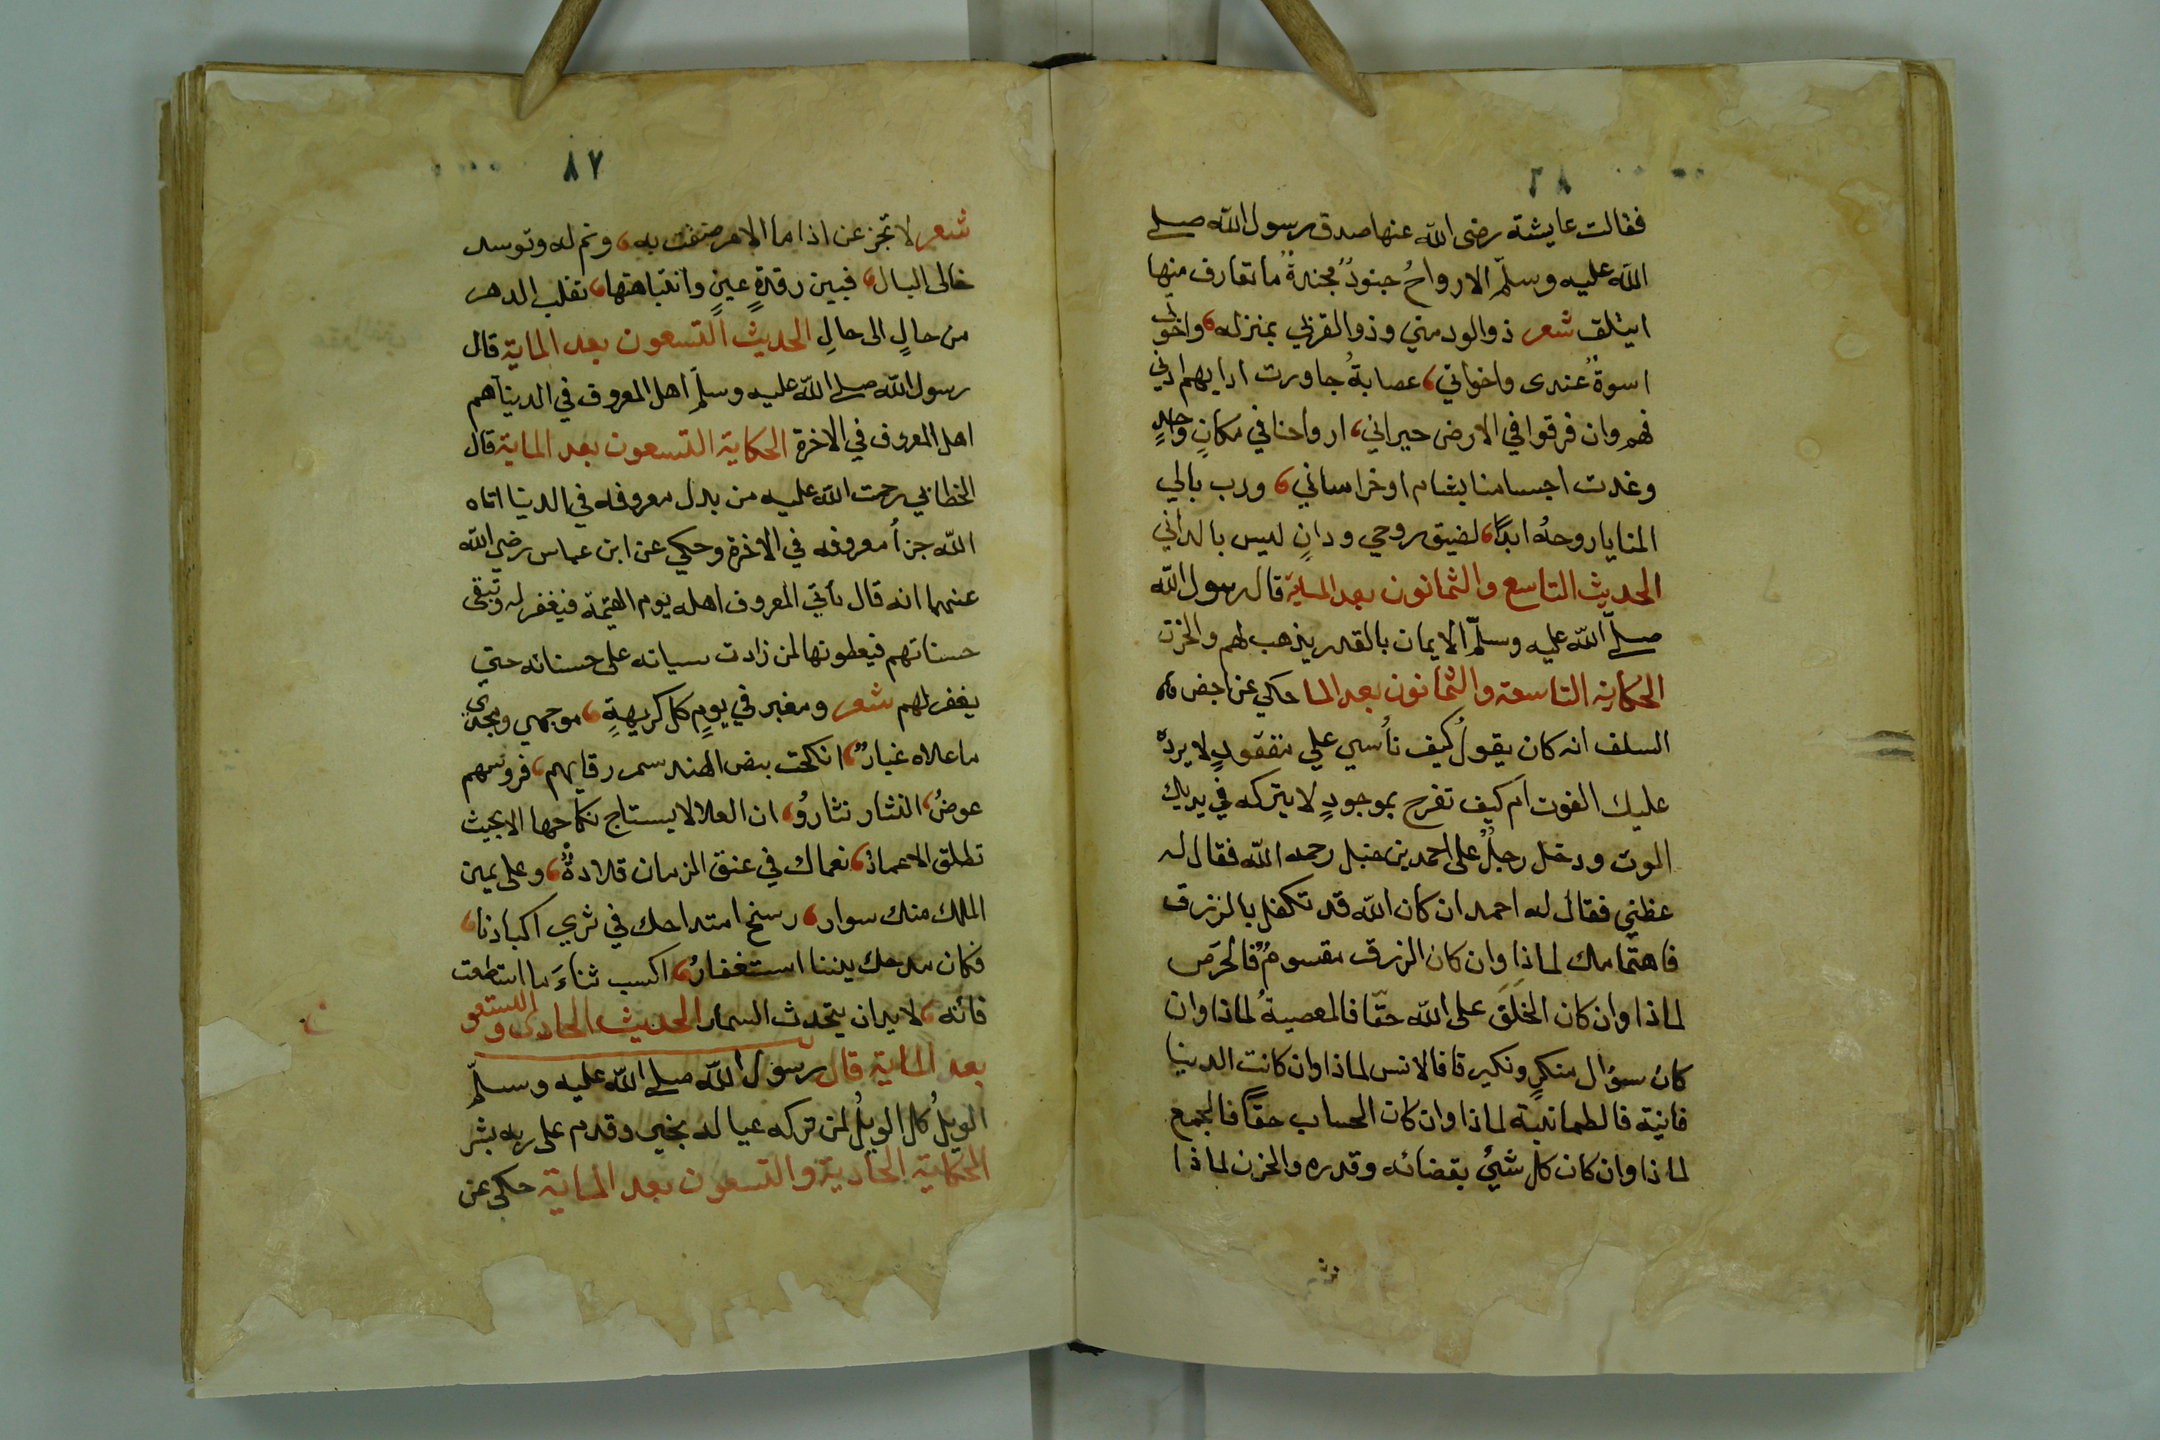 ٨٦
فقالت عايشة رضى الله عنها صدق رسول الله صلى
الله عليه وسلم الارواح جنودٌ مجندةٌ ما تعارف منها
ايتلف شعر ذو الود مني وذو القربي بمنزله واخوتي
اسوةٌ عندى واخواني عصابةٌ جاورت ادابهم ادبي
فهم وان فرقوا في الارض جيراني ارواحنا في مكانٍ واحدٍ
وغدت اجسامنا بشام اوخراساني ورب بالي
المنايا روحهُ ابدًا لضيق روحي ودانٍ ليس بالداني
الحديث التاسع والثمانون بعد الماية قال رسول الله
صلى الله عليه وسلم الايمان بالقدر يذهب لهم والحزن
الحكاية التاسعة والثمانون بعد الما حكي عن بعض
السلف انه كان يقولُ كيف نأسي علي مفقودٍ لا يرده
عليك الفوت ام كيف تفرح بموجودٍ لا يتركه في يديك
الموت ودخل رجلٌ على احمد بن حنبل رحمه الله فقال له
عظني فقال له احمد ان كان الله قد تكفل بالرزق
فاهتمامك لماذا وان كان الرزق مقسومٌ فالحرص
لماذا وان كان الخلَفَ على الله حقًّا فالمعصيةُ لماذا وان
كان سؤال منكرٍ ونكير قا فالانس لماذا وان كانت الدينا
فانية فالطمانية لماذا وان كان الحساب حقًا فالجمع
لماذا وان كان كل شيٍ بقضائه وقدره والحزن لماذا
شعر
٨٧
شعر لا تجزعن اذا ما الامر ضفت به ونم له وتوسد
خالى البال فبين رقدةِ عينٍ وانتباهتها تقلب الدهر
من حالٍ الى حالِ الحديث التسعون بعد الماية قال
رسول الله صلى الله عليه وسلم اهل المعروف في الدينا هم
اهل المعروف في الاخرة الحكاية التسعون بعد الماية قال
الخطابي رحمت الله عليه من بدل معروفه في الدنيا اتاه
الله جزأ معروفه في الاخرة وحكي عن ابن عباس رضي الله
عنهما انه قال يأتي المعروف اهله يوم القيمة فيغفر له وتبقى
حسناتهم فيعطونها لمن زادت سياته على حسناته حتي
يغفر لهم شعر ومغبر في يومِ كل كريهةٍ
ما علاه غبارٌ انكحت بيض الهند سمر رقابهم فروسهم
عوضُ النثار نثارُ ان العلا لا يستاج نكاحها الا بحيث
تطلق الاعمار نعماك في عنق الزمان قلادةٌ وعلى يمين
الملك منك سوار رسخ امتداحك في ثري اكبادنا
فكان مدحك بيننا استغفارُ اكسب ثناءً ما استطعت
فانه لا بدان يتحدث السمار الحديث الحادى والتسعو
بعد الماية قال رسول الله صلى الله عليه وسلم
الويلُ كل الويلُ لمن تركه عياله بخير وقدم على ربه بشر
الحكاية الحادية والتسعون بعد الماية حكي عن